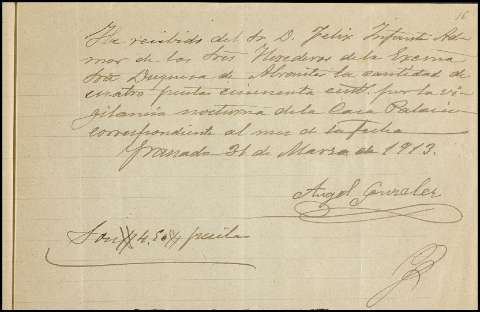 16
He recibido del Sr. D. Felix Infante Ad-
mor de los Sres Herederos de la Excma
Sra Duquesa de Abrantes la cantidad de
cuatro pesetas cincuenta cents. por la vi-
gilancia nocturna de la Casa Palacio
correspondiente al mes de la fecha
Granada 31 de Marzo de 1913.
Angel Gonzalez
Son 4.50 pesetas